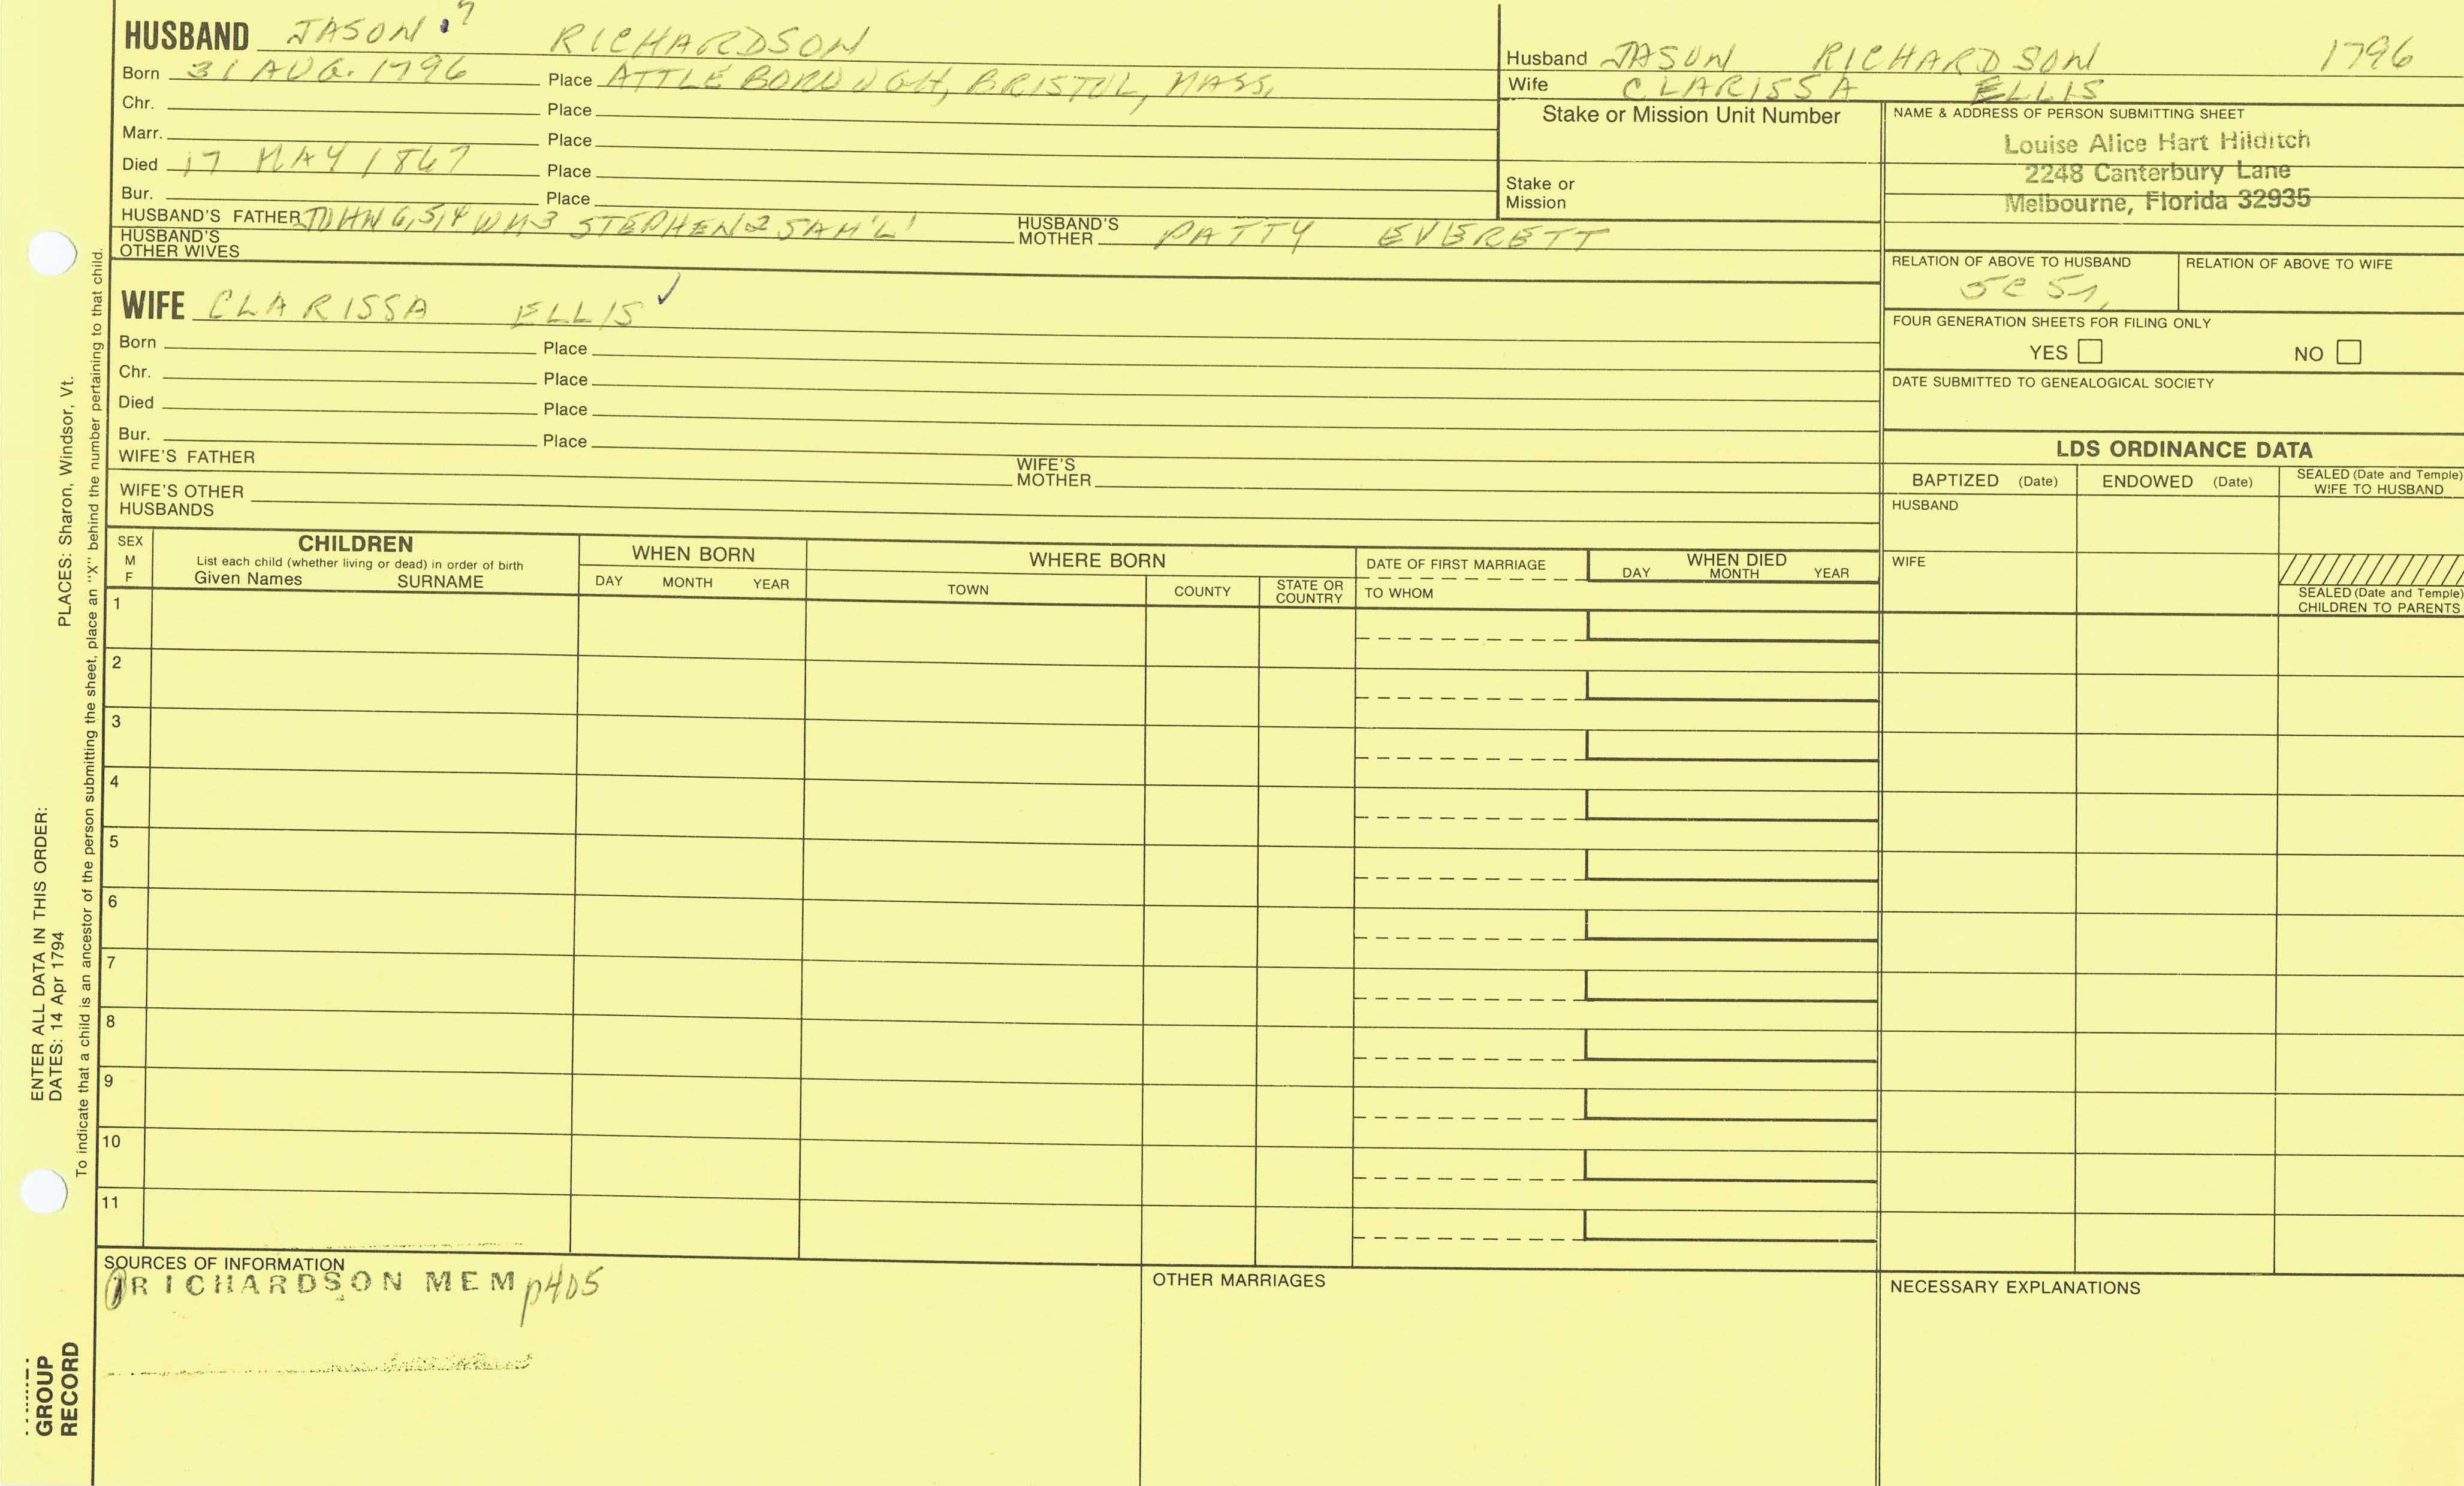 HUSBAND JASON 7 RICHARDSON
Born 31 AUG. 1796 Place ATTLEBOROUGH, BRISTOL, MASS.
Chr. Place
Marr. Place
Died 17 MAY 1867 Place
Bur. Place
HUSBAND'S FATHER JOHN 6,5,4 WM3 STEPHEN2 SAM'L1 HUSBAND'S MOTHER PATTY EVERETT
HUSBAND'S OTHER WIVES
WIFE CLARISSA ELLIS ✓
Born Place
Chr. Place
Died Place
Bur. Place
WIFE'S FATHER WIFE'S MOTHER
WIFE'S OTHER HUSBANDS
Husband JASON RICHARDSON 1796
Wife CLARISSA ELLIS
Stake or Mission Unit Number
Stake or
Mission
NAME & ADDRESS OF PERSON SUBMITTING SHEET
Louise Alice Hart Hilditch
2248 Canterbury Lane
Melbourne, Florida 32935
RELATION OF ABOVE TO HUSBAND RELATION OF ABOVE TO WIFE
5C 5
FOUR GENERATION SHEETS FOR FILING ONLY
YES NO
DATE SUBMITTED TO GENEALOGICAL SOCIETY
LDS ORDINANCE DATA
BAPTIZED (Date) ENDOWED (Date) SEALED (Date and Temple) WIFE TO HUSBAND
HUSBAND
WIFE
SEALED (Date and Temple)
CHILDREN TO PARENTS
SEX
M
F
CHILDREN
List each child (whether living or dead) in order of birth
Given Names SURNAME
WHEN BORN
DAY MONTH YEAR
WHERE BORN
TOWN COUNTY STATE OR COUNTRY
DATE OF FIRST MARRIAGE
TO WHOM
WHEN DIED
DAY MONTH YEAR
1
2
3
4
5
6
7
8
9
10
11
SOURCES OF INFORMATION
RICHARDSON MEM p405
OTHER MARRIAGES
NECESSARY EXPLANATIONS
ENTER ALL DATA IN THIS ORDER:
DATES: 14 Apr 1794 PLACES: Sharon, Windsor, Vt.
To indicate that a child is an ancestor of the person submitting the sheet, place an "X" behind the number pertaining to that child.
GROUP
RECORD